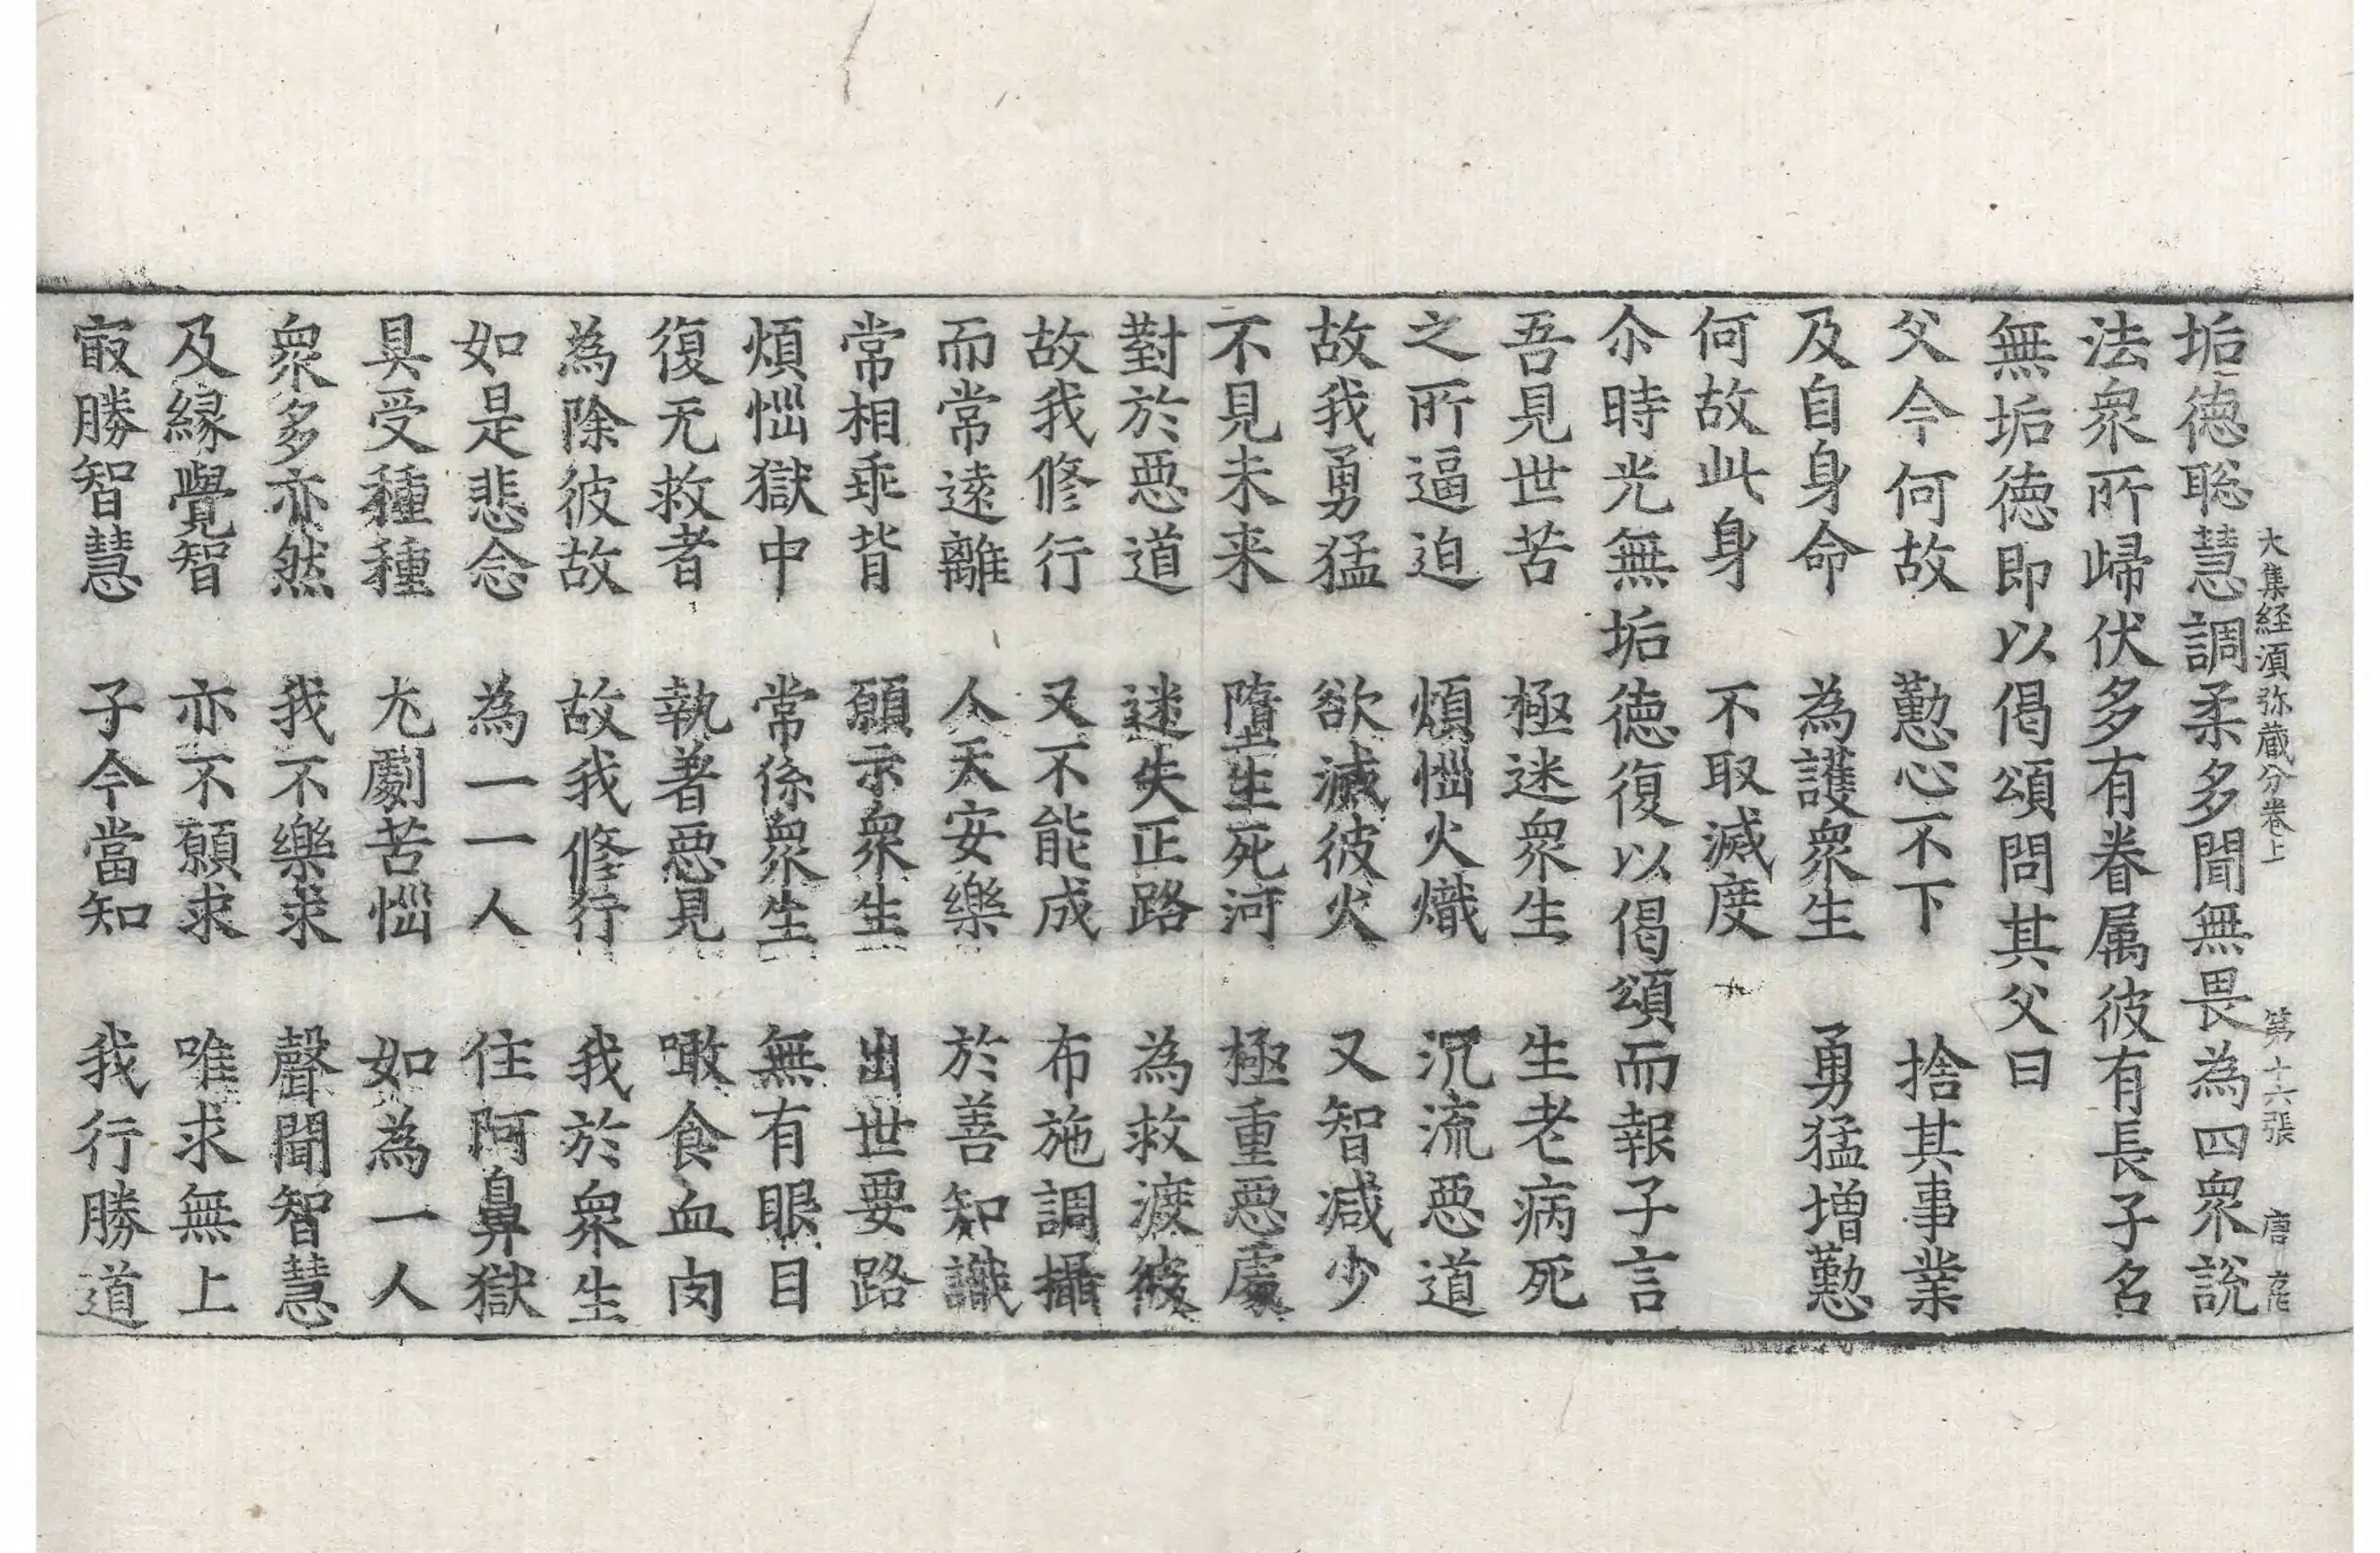 大集経須弥蔵分卷上 第十六張 唐
垢德聡慧調柔多聞無畏為四衆說
法衆所歸伏多有眷属彼有長子名
無垢德即以偈頌問其父曰
父今何故 懃心不下 捨其事業
及自身命 為護衆生 勇猛增懃
何故此身 不取滅度
尒時光無垢德復以偈頌而報子言
吾見世苦 極迷衆生 生老病死
之所逼迫 煩惱火熾 沉流惡道
故我勇猛 欲滅彼火 又智減少
不見未来 墮生死河 極重惡處
對於惡道 迷失正路 為救渡彼
故我修行 又不能成 布施調攝
而常遠離 人天安樂 於善知識
常相乖背 願示衆生 出世要路
煩惱獄中 常係衆生 無有眼目
復无救者 執著惡見 噉食血肉
為除彼故 故我修行 我於衆生
如是悲念 為一一人 住阿鼻獄
具受種種 尤劇苦惱 如為一人
衆多亦然 我不樂求 聲聞智慧
及緣覺智 亦不願求 唯求無上
㝡勝智慧 子今當知 我行勝道